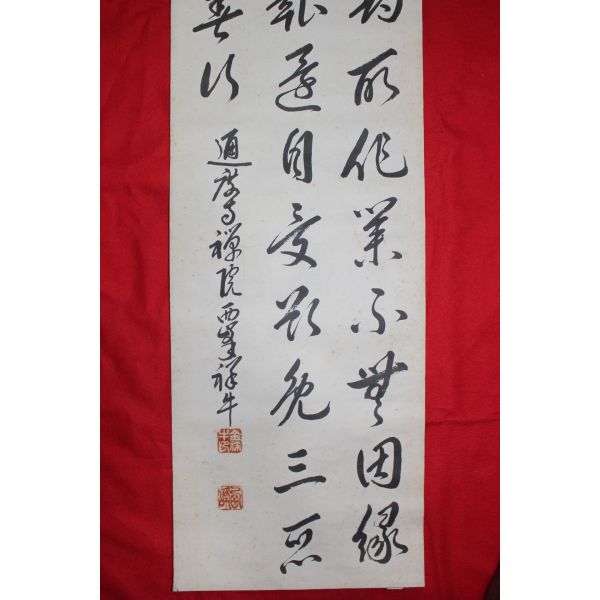 所作業不無因緣
報還自受欲免三惡
善行
通度寺禪院西峯祥牛